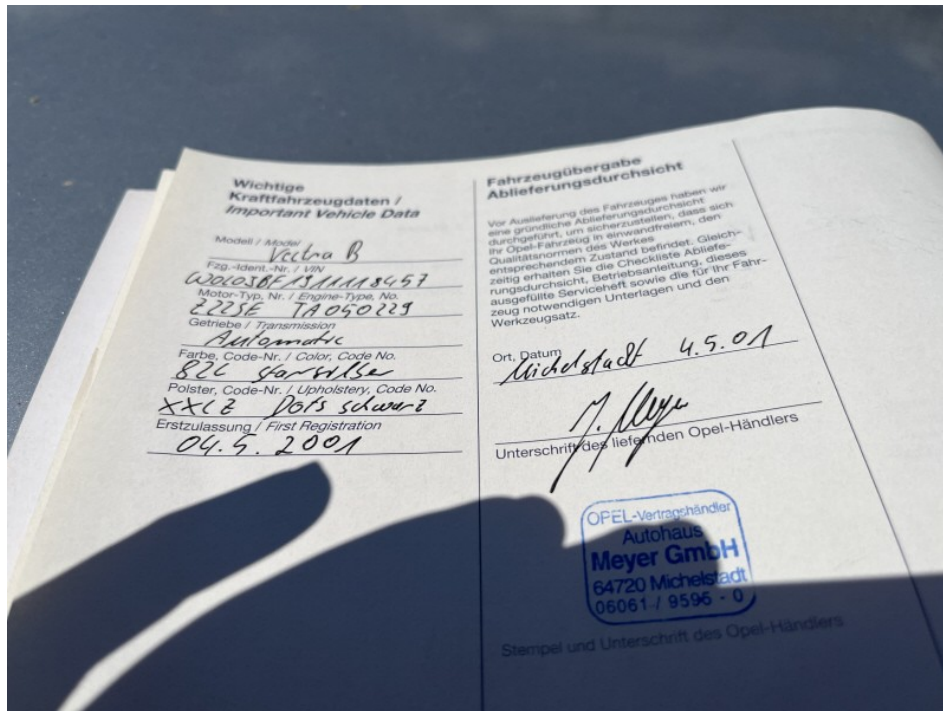 Wichtige
Kraftfahrzeugdaten /
Important Vehicle Data
Modell / Model
Vectra B
Fzg.-Ident.-Nr. / VIN
W0L0JBF1911118457
Motor-Typ, Nr. / Engine-Type, No.
Z22SE TA050229
Getriebe / Transmission
Automatic
Farbe, Code-Nr. / Color, Code No.
82L starsilber
Polster, Code-Nr. / Upholstery, Code No.
XXCZ Dots schwarz
Erstzulassung / First Registration
04.5.2001
Fahrzeugübergabe
Ablieferungsdurchsicht
Vor Auslieferung des Fahrzeuges haben wir
eine gründliche Ablieferungsdurchsicht
durchgeführt, um sicherzustellen, dass sich
Ihr Opel-Fahrzeug in einwandfreiem, den
Qualitätsnormen des Werkes
entsprechendem Zustand befindet. Gleich-
zeitig erhalten Sie die Checkliste Abliefe-
rungsdurchsicht, Betriebsanleitung, dieses
ausgefüllte Serviceheft sowie die für Ihr Fahr-
zeug notwendigen Unterlagen und den
Werkzeugsatz.
Ort, Datum
Michelstadt 4.5.01
J. Meyer
Unterschrift des liefernden Opel-Händlers
OPEL-Vertragshändler
Autohaus
Meyer GmbH
64720 Michelstadt
06061 / 9596 - 0
Stempel und Unterschrift des Opel-Händlers